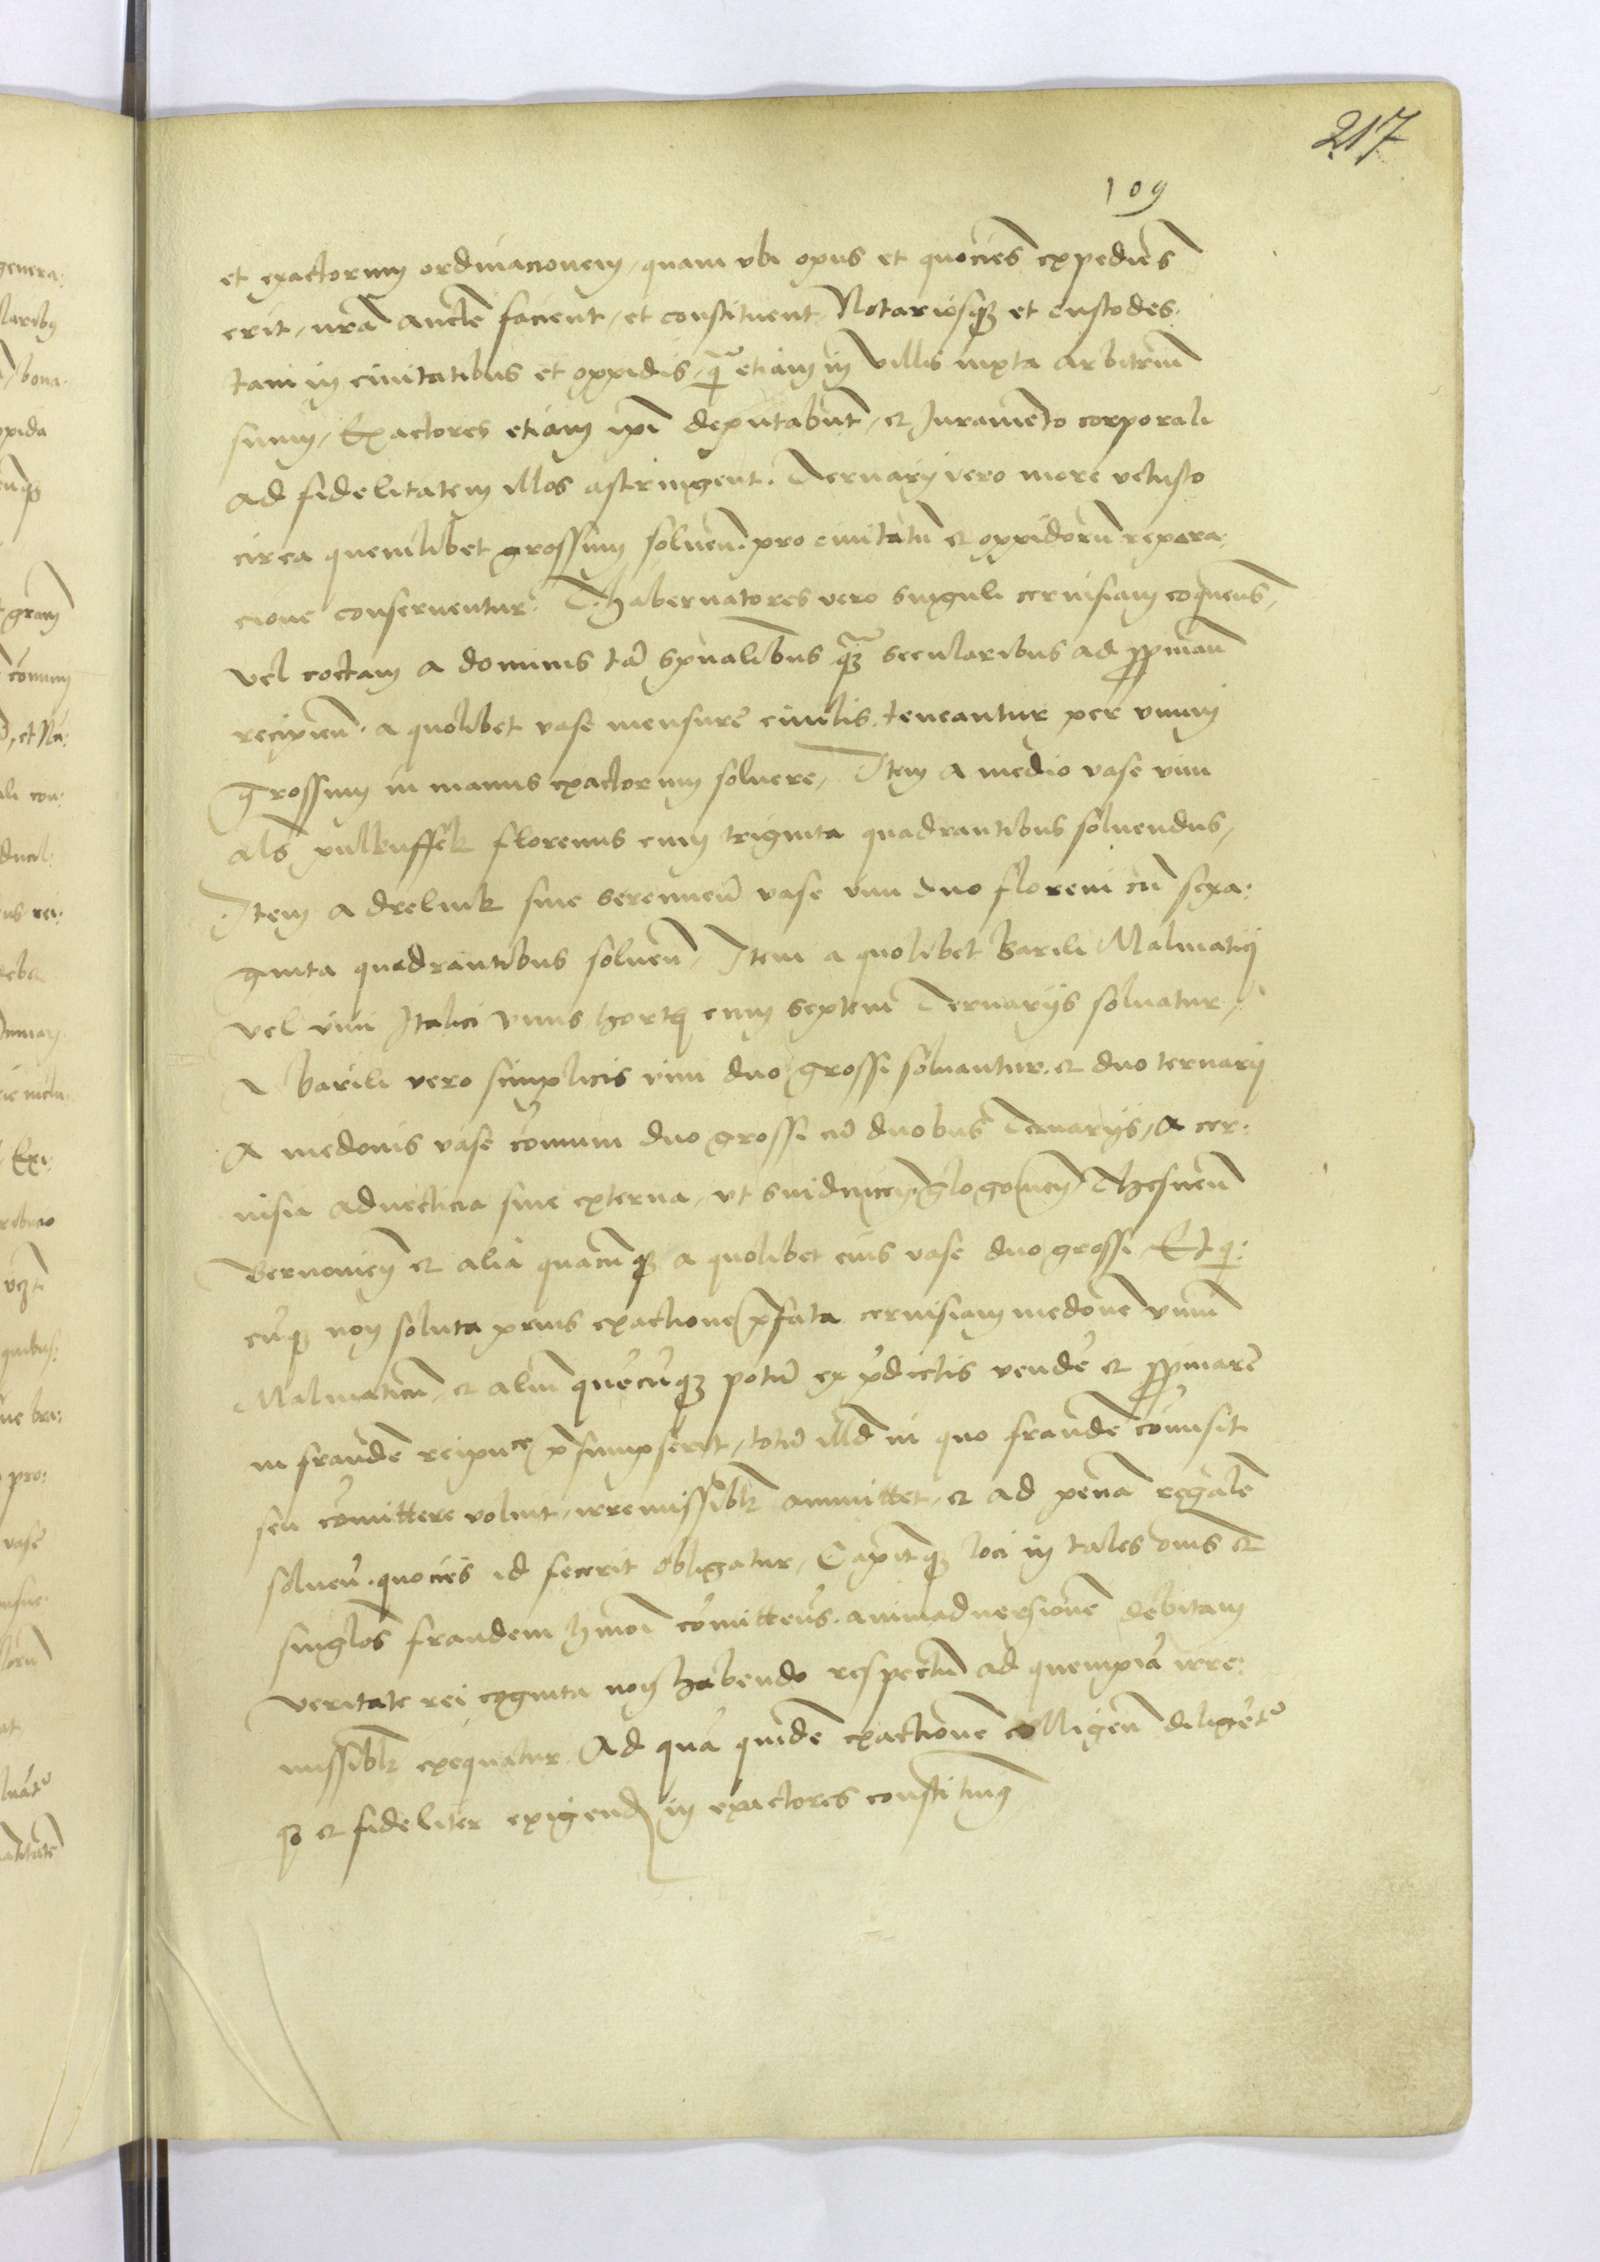 217
109
et exactorum ordinacionem, quam ubi opus et quociens expediens
erit, nrā aucte facient, et constituent, Notariosq3 et custodes
tam in civitatibus et oppidis, q̄ etiam in villis iuxta arbitrium
suum, Exactores etiam ipi deputabunt, et Iuramento corporali
ad fidelitatem illos astringent. Ternarij vero more vetusto
circa quemlibet grossum solven. pro civitatū et oppidorū repara:
cione conserventur. Thabernatores vero singuli cervisiam coquens,
vel coctam a dominis tā spualibus q̄3 secularibus ad ppinan
recipien. a quolibet vase mensure civilis teneantur per unum
Grossum in manus exactorum solvere, Item a medio vase vini
als pulkuffek florenus cum triginta quadrantibus solvendus,
Item a drelink sive vase vini duo floreni cū sexa:
ginta quadrantibus solven, Item a quolibet Barili Malmatici
vel vini Italici unus hortq cum septem Ternarijs solvatur,
A barili vero simplicis vini duo grossi solvantur. et duo ternarij
A medonis vase comuni duo grossi cū duobus Ternarijs, A cer:
visia advecticia sive externa, ut Svidnicen, glogovien
et alia quacunq3 a quolibet eius vase duo grossi, Et q:
cūq3 non soluta prius exactione pfata cervisiam medonē vinū
Malmaticū, et aliū quēcūq3 potū ex pdictis vendē et ppinarē
in fraudē reipuce psumpserit, totū illd in quo fraudē cōmisit
seu cōmittere voluit, irremissiblr ammittet, et ad penā regalē
solven. quocies id fecerit obligatur, Capitq3 loci in tales oms et
singlos fraudem hmoi cōmittens. animadversionē debitam
veritate rei cognita non habendo respectū ad quempiā irre:
missiblr exequatur. Ad quā quidē exactionē colligen diligēt
et fideliter exigend in exactores constituimus